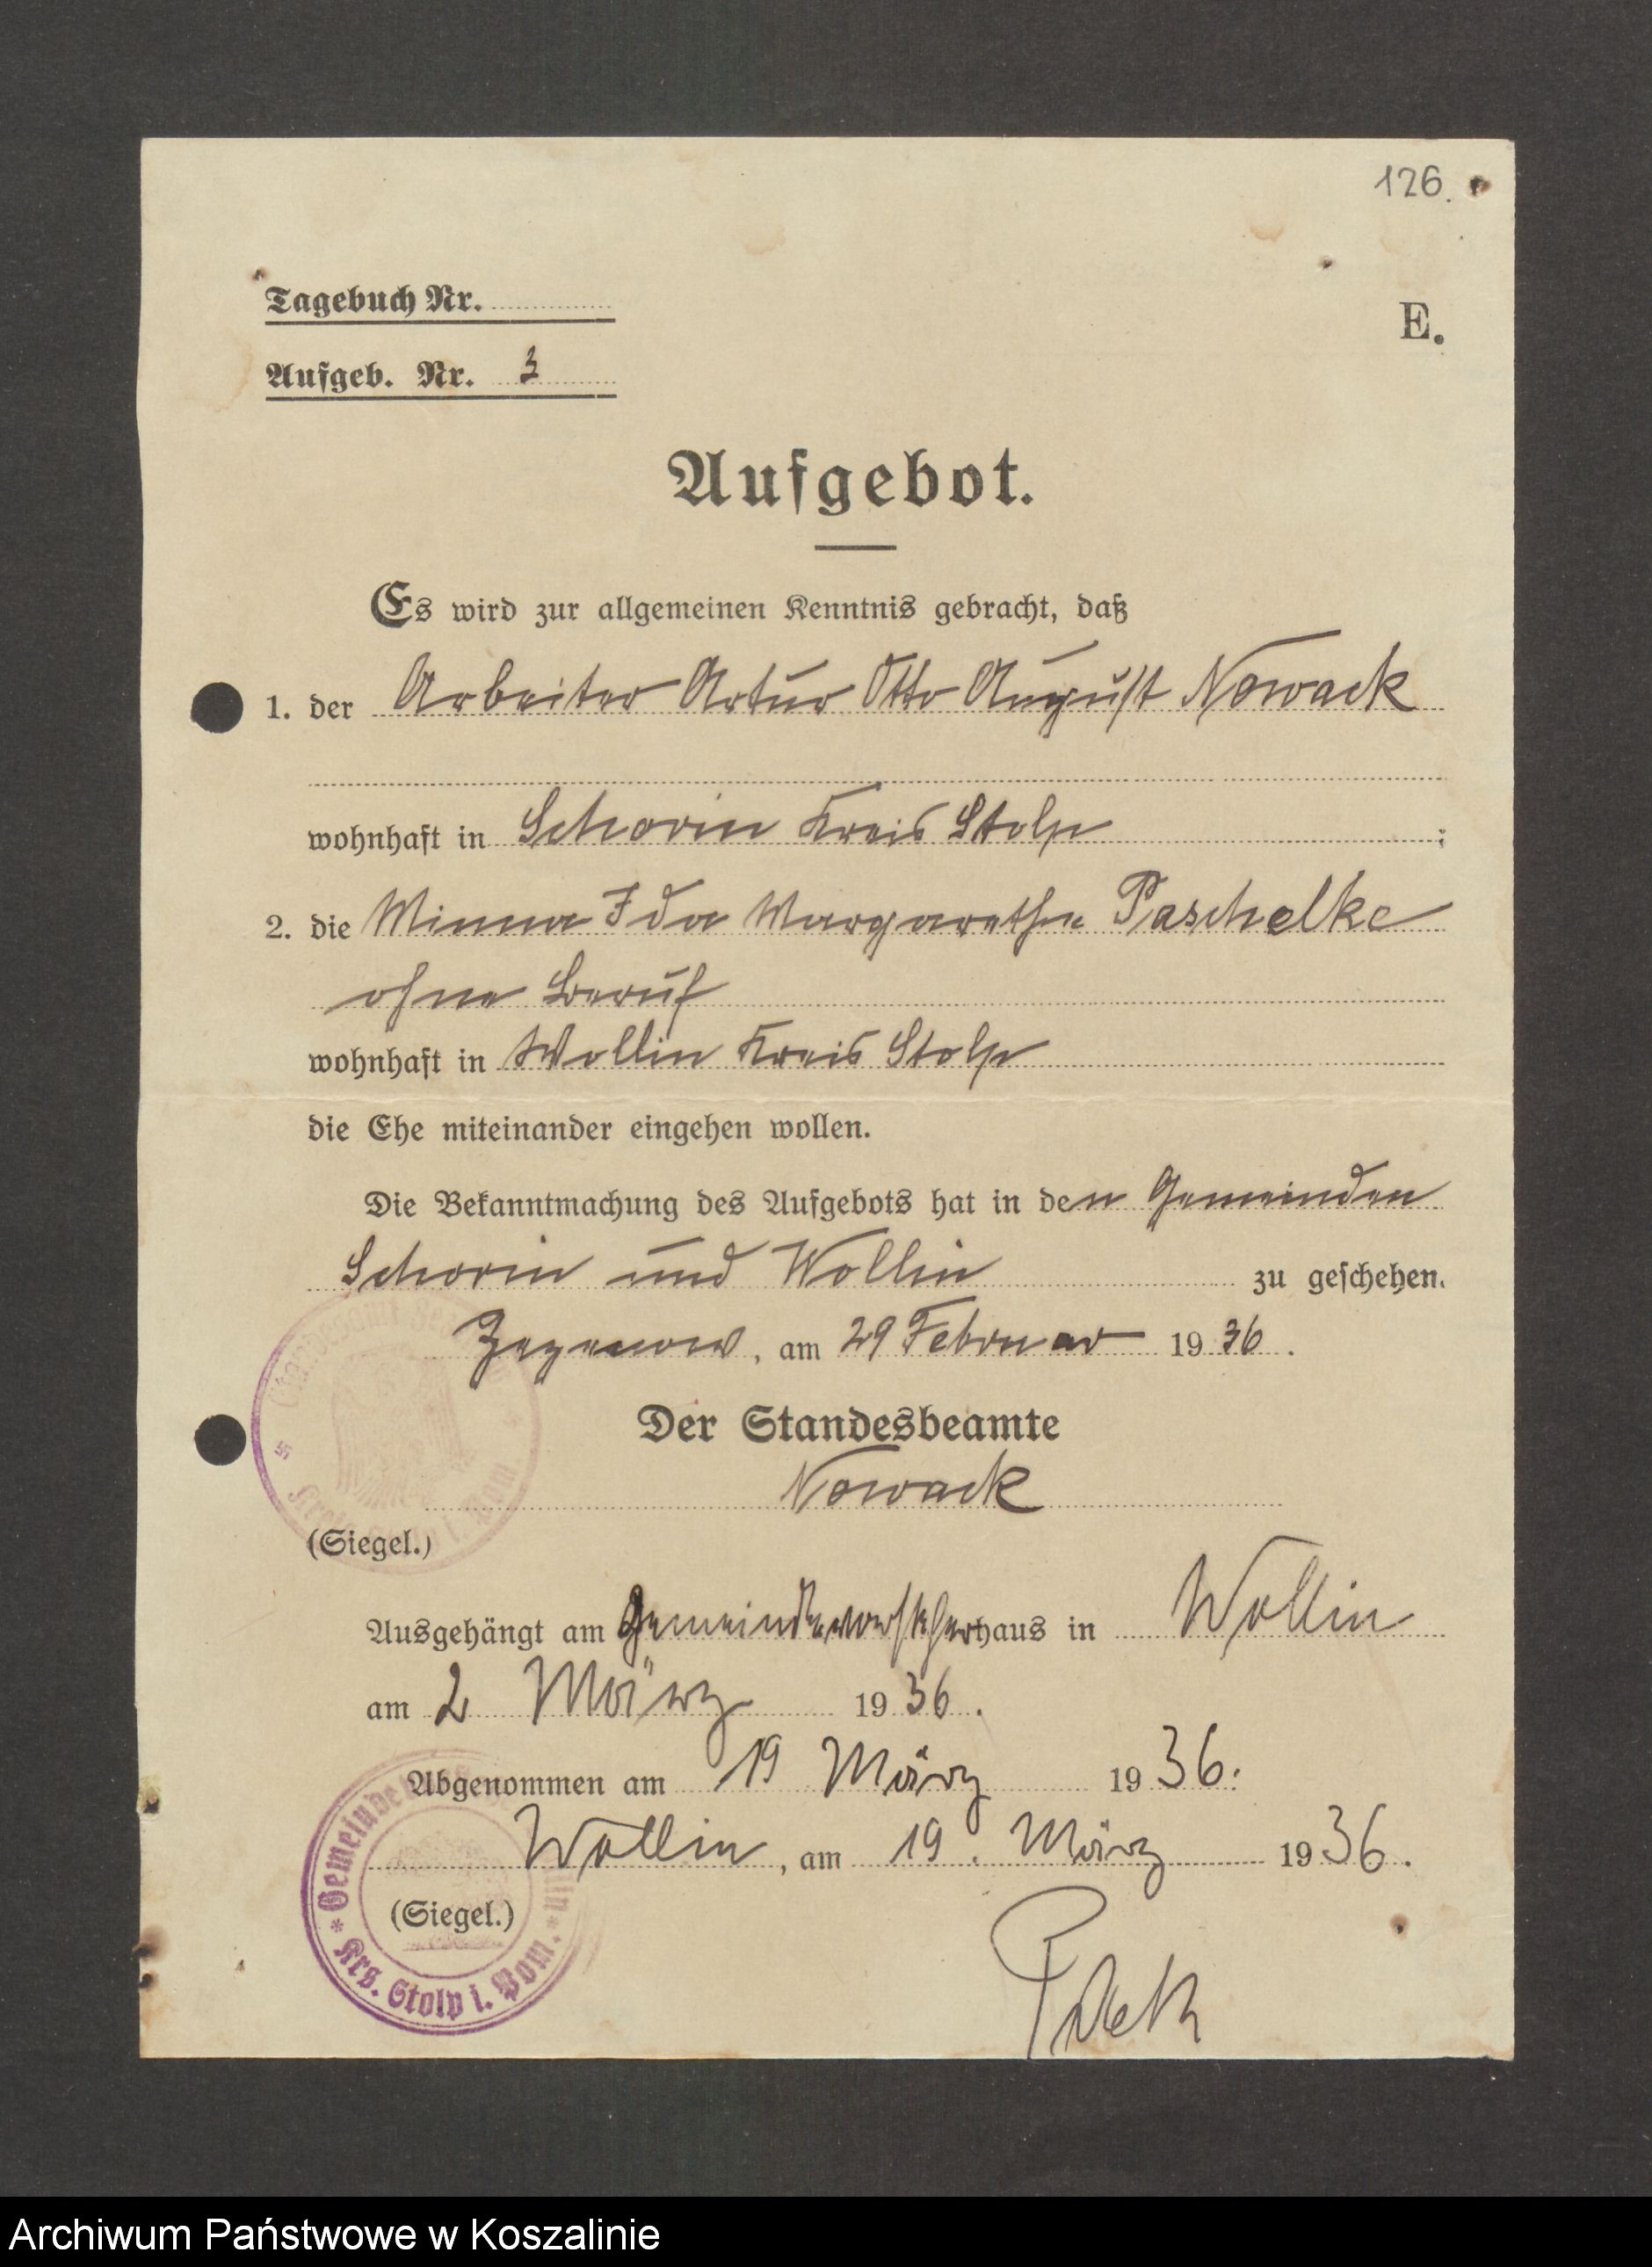 126.
Tagebuch Nr.
E.
Aufgeb. Nr. 3
Aufgebot.
Es wird zur allgemeinen Kenntnis gebracht, daß
1. der Arbeiter Artur Otto August Nowack
wohnhaft in Schorin Kreis Stolp ;
2. die Minna Ida Margarethe Paschelke
ohne Beruf
wohnhaft in Wollin Kreis Stolp
die Ehe miteinander eingehen wollen.
Die Bekanntmachung des Aufgebots hat in den Gemeinden
Schorin und Wollin zu geschehen.
Zezenow, am 29 Februar 1936.
Der Standesbeamte
Nowack
(Siegel.)
Ausgehängt am Gemeindevorsteherhaus in Wollin
am 2 März 1936.
Abgenommen am 19 März 1936.
Wollin, am 19. März 1936.
(Siegel.)
* Krs. Stolp i. Pom. *
Archiwum Państwowe w Koszalinie